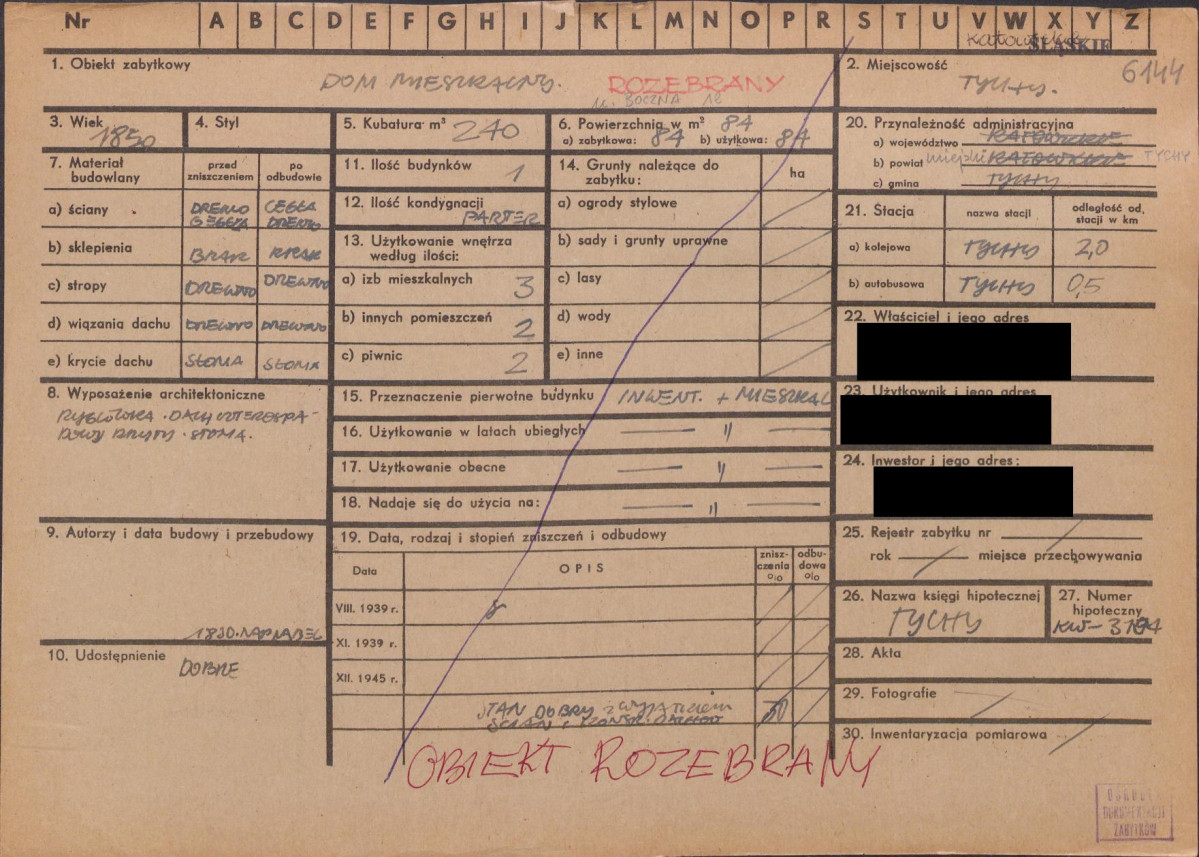 Nr A B C D E F G H I J K L M N O P R S T U V W X Y Z
ŚLĄSKIE
1. Obiekt zabytkowy
DOM MIESZKALNY. ROZEBRANY
ul. BOCZNA 18
2. Miejscowość
TYCHY.
6144
3. Wiek
1850
4. Styl
5. Kubatura m³ 240
6. Powierzchnia w m² 84
a) zabytkowa: 84 b) użytkowa: 84
20. Przynależność administracyjna
a) województwo KATOWICKIE
b) powiat miejski TYCHY
c) gmina TYCHY
7. Materiał budowlany
przed zniszczeniem
po odbudowie
a) ściany DREWNO CEGŁA CEGŁA DREWNO
b) sklepienia BRAK BRAK
c) stropy DREWNO DREWNO
d) wiązania dachu DREWNO DREWNO
e) krycie dachu SŁOMA SŁOMA
11. Ilość budynków 1
12. Ilość kondygnacji
PARTER
13. Użytkowanie wnętrza
według ilości:
a) izb mieszkalnych 3
b) innych pomieszczeń 2
c) piwnic 2
14. Grunty należące do
zabytku:
ha
a) ogrody stylowe
b) sady i grunty uprawne
c) lasy
d) wody
e) inne
21. Stacja nazwa stacji odległość od, stacji w km
a) kolejowa TYCHY 2,0
b) autobusowa TYCHY 0,5
22. Właściciel i jego adres
23. Użytkownik i jego adres
24. Inwestor i jego adres:
8. Wyposażenie architektoniczne
DACH
KRYTY SŁOMA.
15. Przeznaczenie pierwotne budynku INWENT. + MIESZKAL
16. Użytkowanie w latach ubiegłych — " —
17. Użytkowanie obecne — " —
18. Nadaje się do użycia na: — " —
9. Autorzy i data budowy i przebudowy
10. Udostępnienie
DOBRE
19. Data, rodzaj i stopień zniszczeń i odbudowy
Data
OPIS
znisz-
czenia
%
odbu-
dowa
%
VIII. 1939 r.
XI. 1939 r.
XII. 1945 r.
STAN DOBRY z wyjątkiem 50
ŚCIAN i KONSTR. DACHOW
OBIEKT ROZEBRANY
25. Rejestr zabytku nr
rok miejsce przechowywania
26. Nazwa księgi hipotecznej
TYCHY
27. Numer
hipoteczny
28. Akta
29. Fotografie
30. Inwentaryzacja pomiarowa
DOKUMENTACJI
ZABYTKÓW